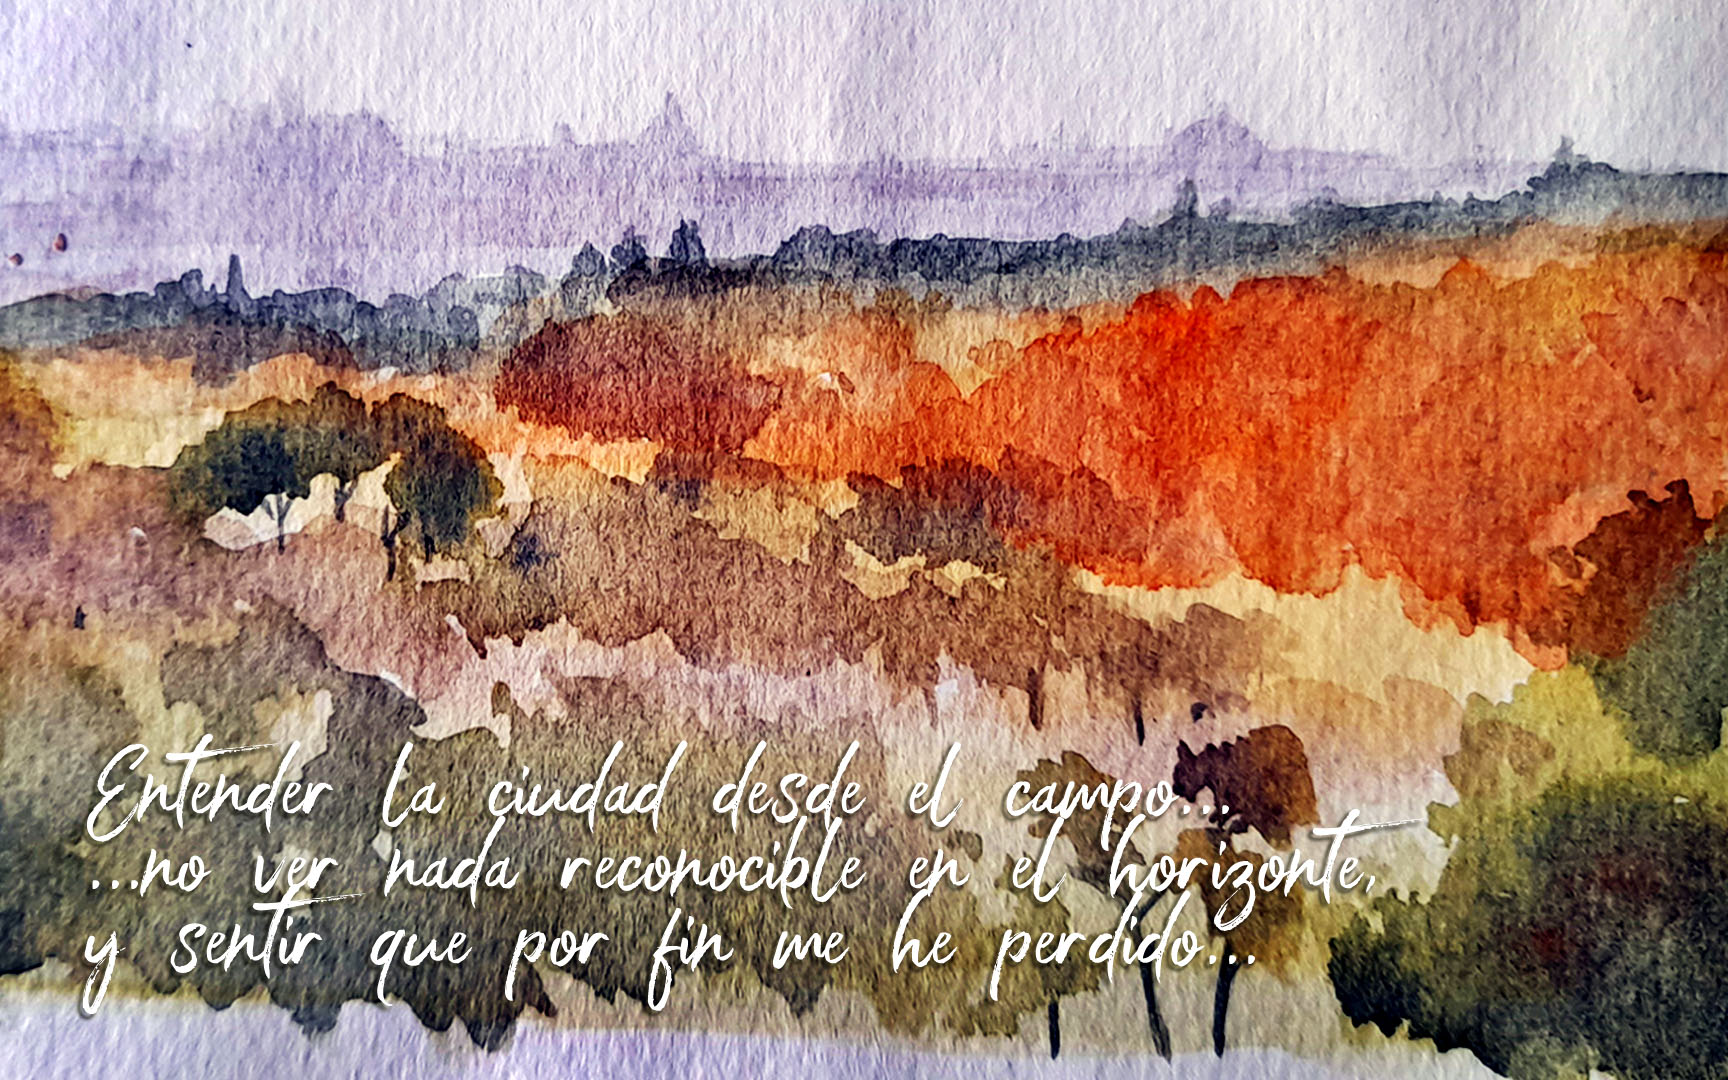 Entender la ciudad desde el campo...
...no ver nada reconocible en el horizonte,
y sentir que por fin me he perdido...